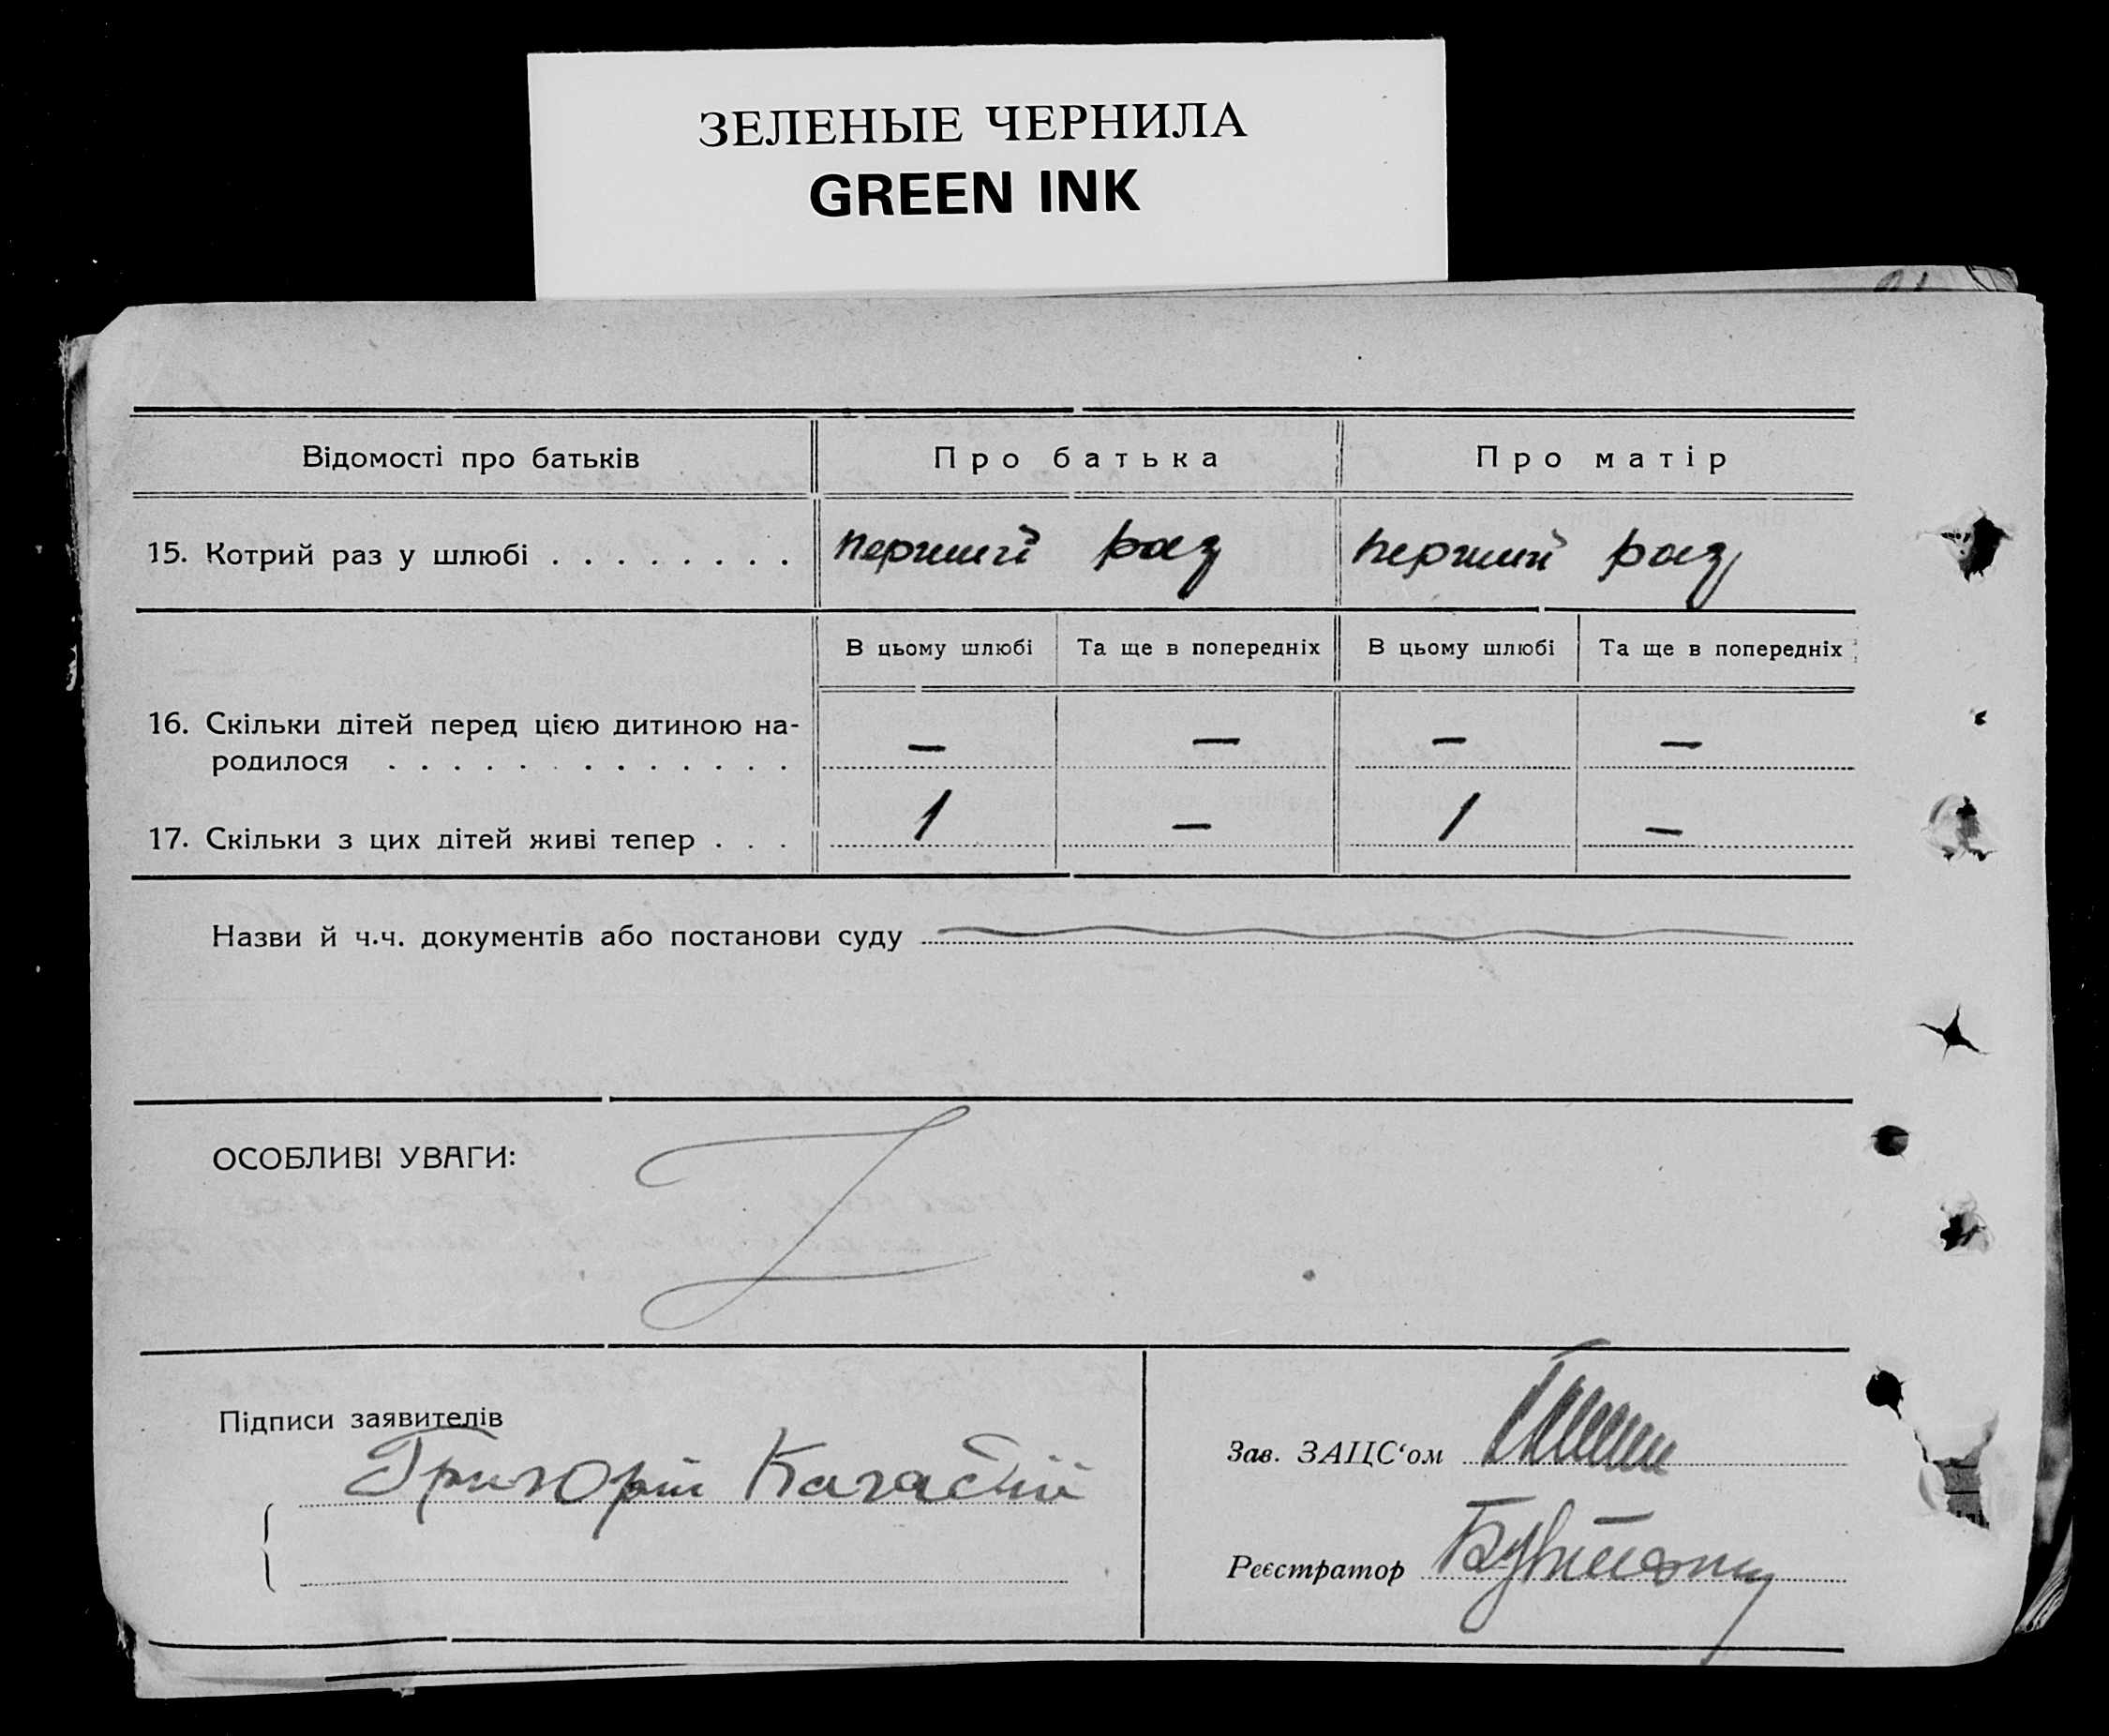 ЗЕЛЕНЫЕ ЧЕРНИЛА
GREEN INK
Відомості про батьків Про батька Про матір
15. Котрий раз у шлюбі . . . . . . . . перший раз перший раз
В цьому шлюбі Та ще в попередніх В цьому шлюбі Та ще в попередніх
16. Скільки дітей перед цією дитиною на-
родилося . . . . . . . . . . . . . — — — —
17. Скільки з цих дітей живі тепер . . . 1 — 1 —
Назви й ч.ч. документів або постанови суду
ОСОБЛИВІ УВАГИ:
Підписи заявителів
Григорій
Зав. ЗАЦС‘ом
Реєстратор